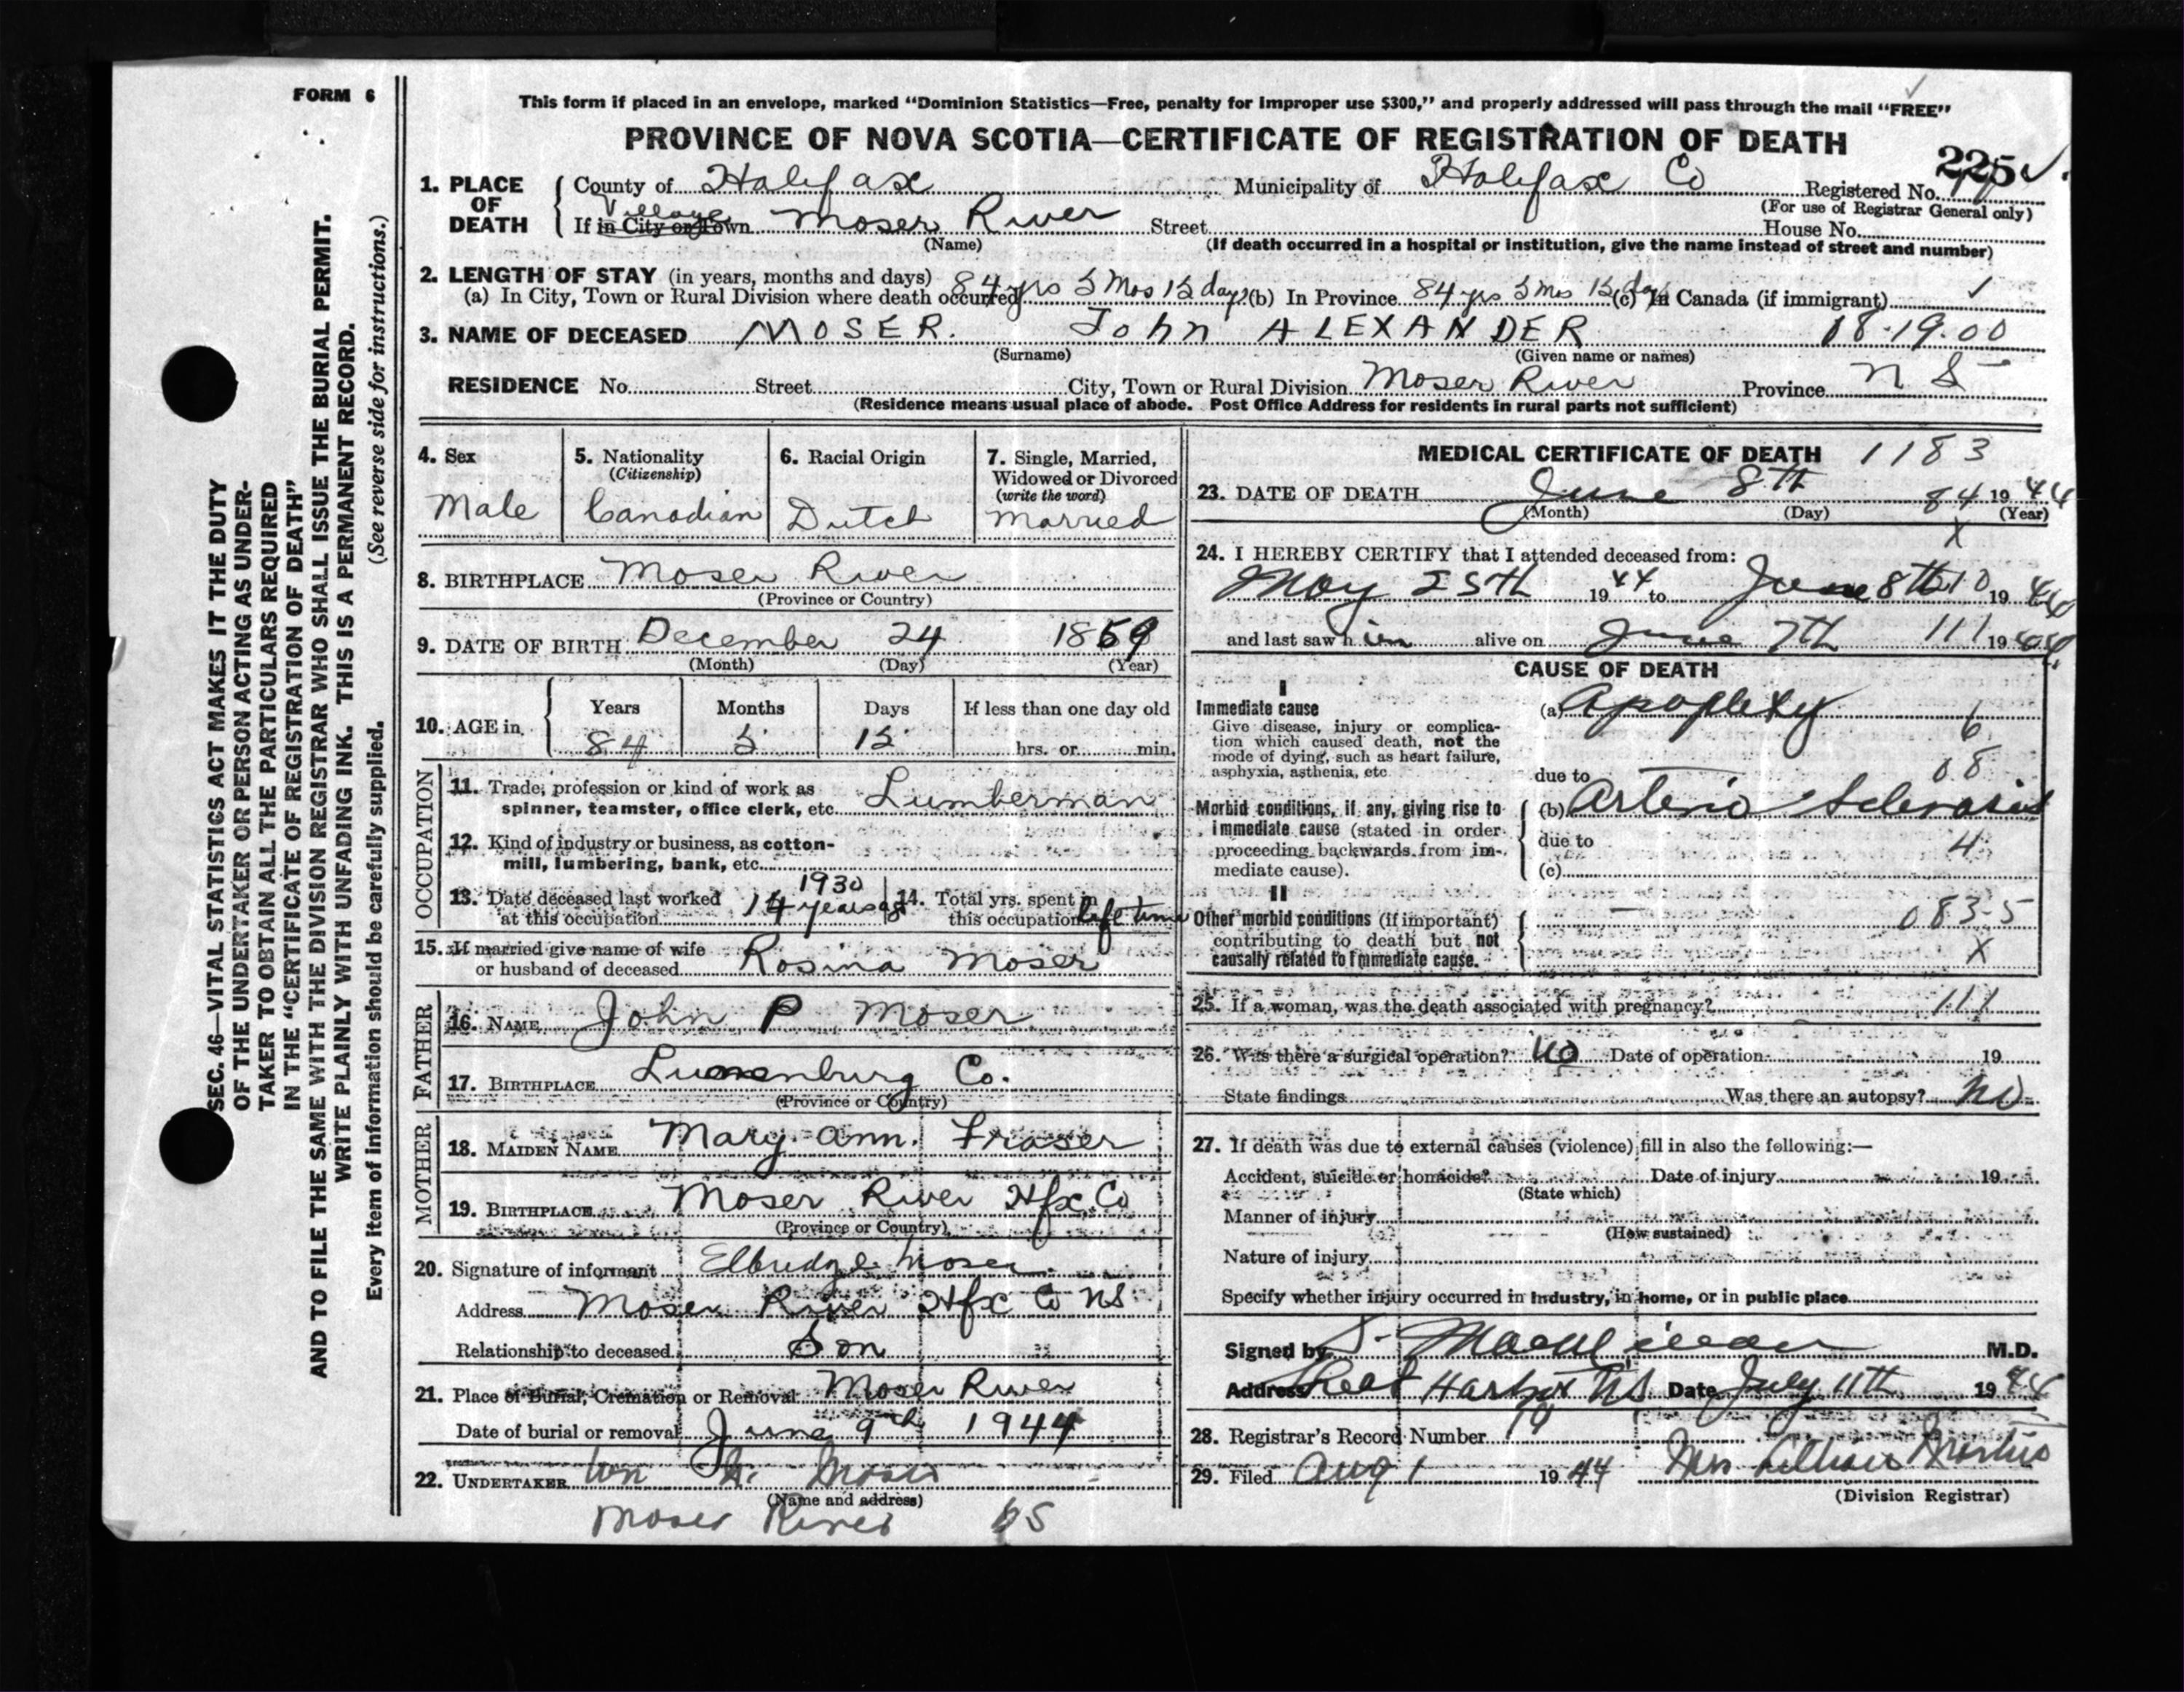 FORM 6
This form if placed in an envelope, marked "Dominion Statistics—Free, penalty for improper use $300," and properly addressed will pass through the mail "FREE"
PROVINCE OF NOVA SCOTIA—CERTIFICATE OF REGISTRATION OF DEATH
225
1. PLACE OF DEATH County of Halifax Municipality of Halifax Co Registered No.
(For use of Registrar General only)
If in City or Town Village Moser River Street House No.
(Name) (If death occurred in a hospital or institution, give the name instead of street and number)
2. LENGTH OF STAY (in years, months and days)
(a) In City, Town or Rural Division where death occurred 84 yrs 5 Mos 15 days (b) In Province 84 yrs 5 mos 15 days (c) In Canada (if immigrant)
3. NAME OF DECEASED MOSER. John ALEXANDER 18-19.00
(Surname) (Given name or names)
RESIDENCE No. Street City, Town or Rural Division Moser River Province N S
(Residence means usual place of abode. Post Office Address for residents in rural parts not sufficient)
4. Sex Male
5. Nationality (Citizenship) Canadian
6. Racial Origin Dutch
7. Single, Married, Widowed or Divorced (write the word) Married
8. BIRTHPLACE Moser River
(Province or Country)
9. DATE OF BIRTH December 24 1859
(Month) (Day) (Year)
10. AGE in Years Months Days If less than one day old
84 5 15 hrs. or min.
OCCUPATION
11. Trade, profession or kind of work as spinner, teamster, office clerk, etc. Lumberman
12. Kind of industry or business, as cotton-mill, lumbering, bank, etc.
13. Date deceased last worked at this occupation 1930 14 years ago
14. Total yrs. spent in this occupation life time
15. If married give name of wife or husband of deceased Rosina Moser
FATHER
16. NAME John P Moser
17. BIRTHPLACE Lunenburg Co.
(Province or Country)
MOTHER
18. MAIDEN NAME Mary Ann Fraser
19. BIRTHPLACE Moser River Hfx. Co
(Province or Country)
20. Signature of informant Elbridge Moser
Address Moser River Hfx Co NS
Relationship to deceased Son
21. Place of Burial, Cremation or Removal Moser River
Date of burial or removal June 9th 1944
22. UNDERTAKER Wm Moser
(Name and address)
Moser River
MEDICAL CERTIFICATE OF DEATH 1183
23. DATE OF DEATH June 8th 84 1944
(Month) (Day) (Year)
X
24. I HEREBY CERTIFY that I attended deceased from:
May 25th 1944 to June 8th 210 1944
and last saw him alive on June 7th 111 1944
CAUSE OF DEATH
I
Immediate cause
Give disease, injury or complication which caused death, not the mode of dying, such as heart failure, asphyxia, asthenia, etc
(a) Apoplexy 6
due to 08
Morbid conditions, if any, giving rise to immediate cause (stated in order proceeding backwards from immediate cause).
(b) Arterio Sclerosis
due to 4
(c)
II
Other morbid conditions (if important) contributing to death but not causally related to immediate cause.
083-5
X
25. If a woman, was the death associated with pregnancy? 111
26. Was there a surgical operation? no Date of operation 19
State findings Was there an autopsy? No
27. If death was due to external causes (violence) fill in also the following:—
Accident, suicide or homicide? Date of injury 19
(State which)
Manner of injury
(How sustained)
Nature of injury
Specify whether injury occurred in industry, in home, or in public place
Signed by M.D.
Address Harbor NS Date July 11th 1944
28. Registrar's Record Number 19
29. Filed Aug 1 1944 Mrs Lillian
(Division Registrar)
SEC. 46—VITAL STATISTICS ACT MAKES IT THE DUTY
OF THE UNDERTAKER OR PERSON ACTING AS UNDER-
TAKER TO OBTAIN ALL THE PARTICULARS REQUIRED
IN THE "CERTIFICATE OF REGISTRATION OF DEATH"
AND TO FILE THE SAME WITH THE DIVISION REGISTRAR WHO SHALL ISSUE THE BURIAL PERMIT.
WRITE PLAINLY WITH UNFADING INK. THIS IS A PERMANENT RECORD.
Every item of information should be carefully supplied. (See reverse side for instructions.)